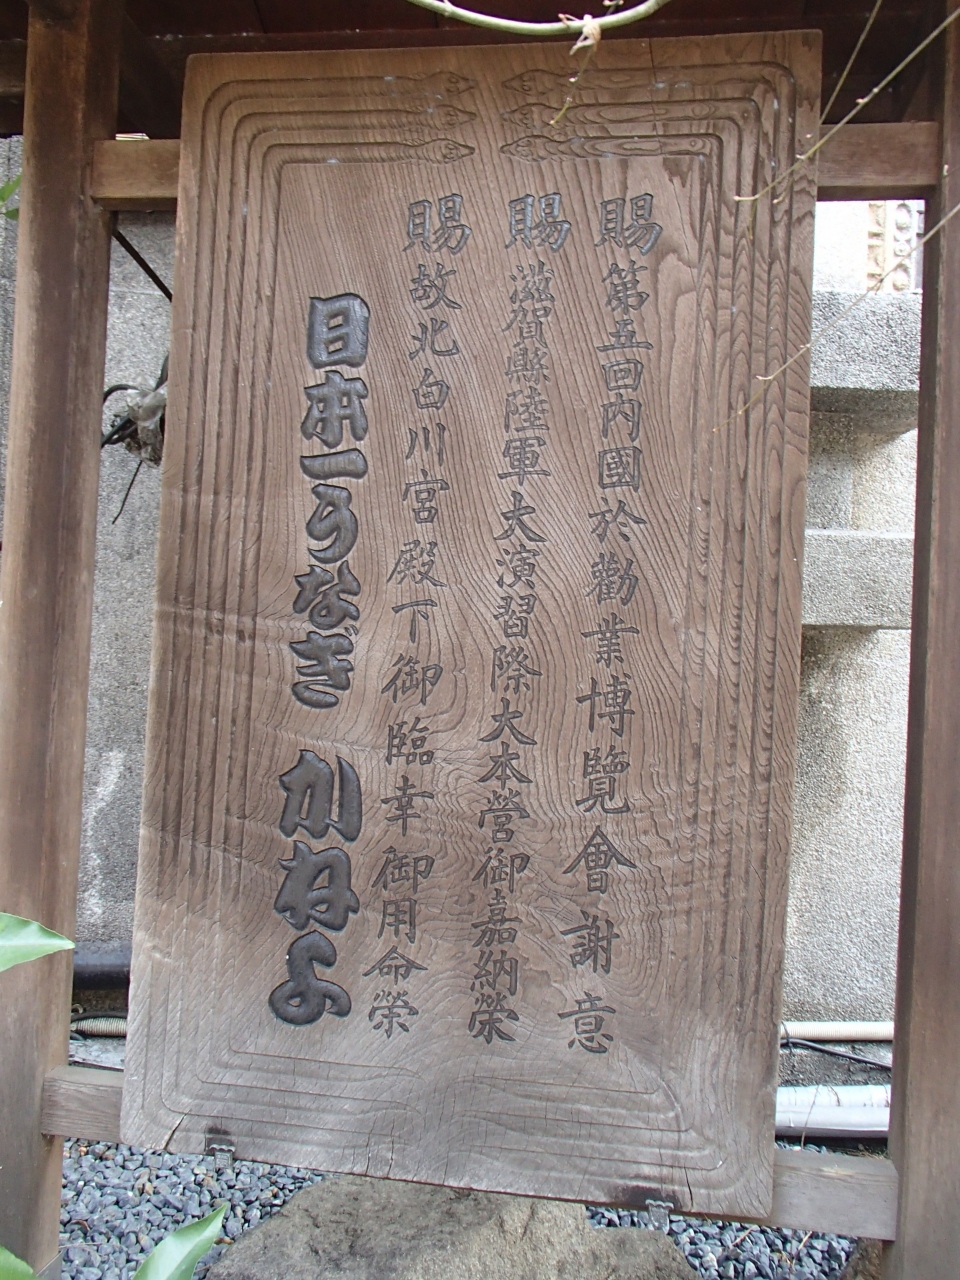 賜第五回内國於勸業博覽會謝意
賜滋賀縣陸軍大演習際大本營御嘉納榮
賜故北白川宮殿下御臨幸御用命榮
日本一うなぎ かねよ